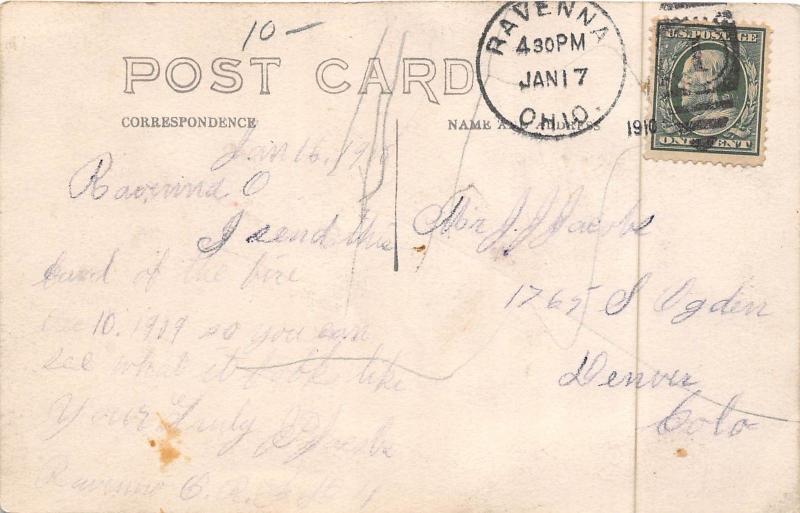 10-
POST CARD
CORRESPONDENCE
NAME AND ADDRESS
RAVENNA
4 30 PM
JAN 17
OHIO.
1910
U.S. POSTAGE
ONE CENT
Jan 16, 1910
Ravenna O
I send this
card of the fire
Dec 10, 1909 so you can
see what it looks like
Your Truly J Jacobs
Ravenna O.
Mr J. J Jacobs
1765 S Ogden
Denver
Colo